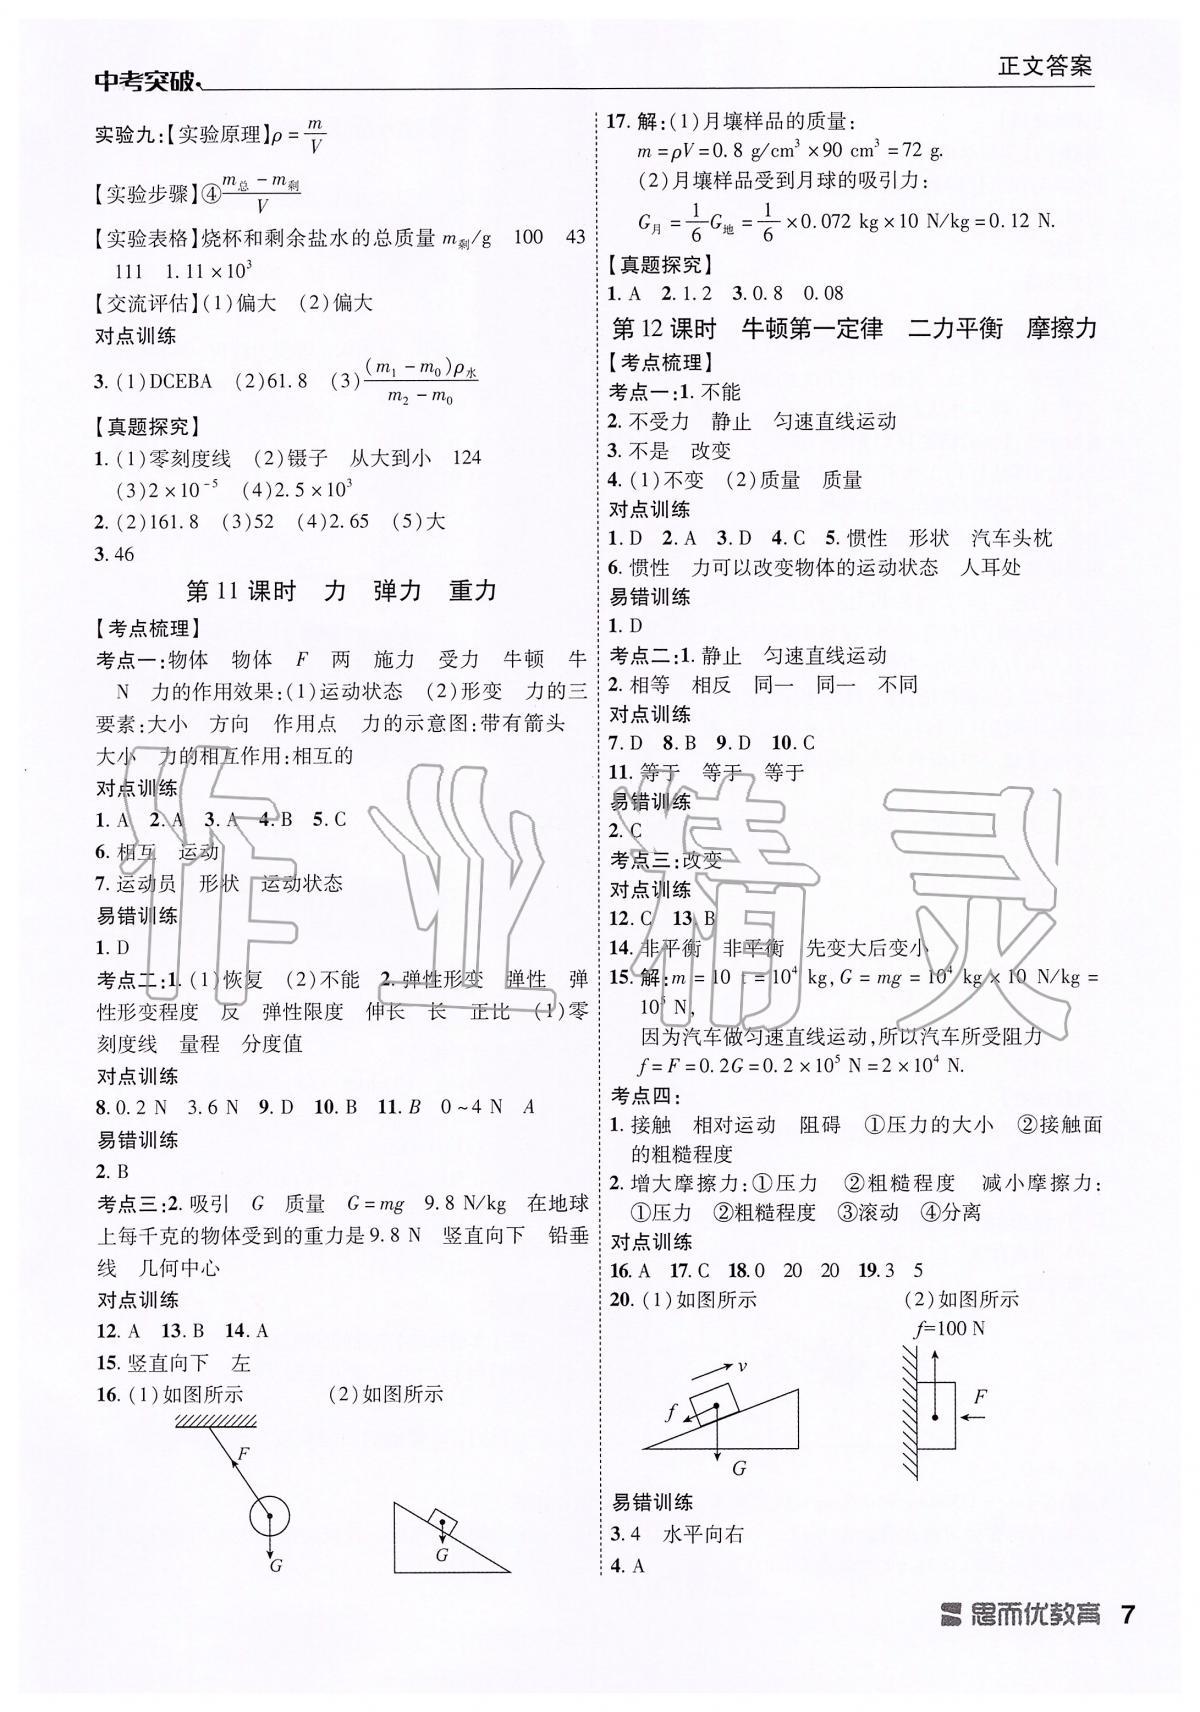 中考突破
正文答案
实验九:【实验原理】ρ = m/V
【实验步骤】④(m总 − m剩)/V
【实验表格】烧杯和剩余盐水的总质量 m剩/g　100　43
111　1.11 × 10³
【交流评估】(1)偏大　(2)偏大
对点训练
3. (1)DCEBA　(2)61.8　(3)(m₁ − m₀)ρ水/(m₂ − m₀)
【真题探究】
1. (1)零刻度线　(2)镊子　从大到小　124
(3)2 × 10⁻⁵　(4)2.5 × 10³
2. (2)161.8　(3)52　(4)2.65　(5)大
3. 46
第 11 课时　力　弹力　重力
【考点梳理】
考点一:物体　物体　F　两　施力　受力　牛顿　牛
N　力的作用效果:(1)运动状态　(2)形变　力的三
要素:大小　方向　作用点　力的示意图:带有箭头
大小　力的相互作用:相互的
对点训练
1. A　2. A　3. A　4. B　5. C
6. 相互　运动
7. 运动员　形状　运动状态
易错训练
1. D
考点二:1. (1)恢复　(2)不能　2. 弹性形变　弹性　弹
性形变程度　反　弹性限度　伸长　长　正比　(1)零
刻度线　量程　分度值
对点训练
8. 0.2 N　3.6 N　9. D　10. B　11. B　0 ~ 4 N　A
易错训练
2. B
考点三:2. 吸引　G　质量　G = mg　9.8 N/kg　在地球
上每千克的物体受到的重力是 9.8 N　竖直向下　铅垂
线　几何中心
对点训练
12. A　13. B　14. A
15. 竖直向下　左
16. (1)如图所示　(2)如图所示
F
G
G
17. 解:(1)月壤样品的质量:
m = ρV = 0.8 g/cm³ × 90 cm³ = 72 g.
(2)月壤样品受到月球的吸引力:
G月 = 1/6 G地 = 1/6 × 0.072 kg × 10 N/kg = 0.12 N.
【真题探究】
1. A　2. 1.2　3. 0.8　0.08
第 12 课时　牛顿第一定律　二力平衡　摩擦力
【考点梳理】
考点一:1. 不能
2. 不受力　静止　匀速直线运动
3. 不是　改变
4. (1)不变　(2)质量　质量
对点训练
1. D　2. A　3. D　4. C　5. 惯性　形状　汽车头枕
6. 惯性　力可以改变物体的运动状态　人耳处
易错训练
1. D
考点二:1. 静止　匀速直线运动
2. 相等　相反　同一　同一　不同
对点训练
7. D　8. B　9. D　10. C
11. 等于　等于　等于
易错训练
2. C
考点三:改变
对点训练
12. C　13. B
14. 非平衡　非平衡　先变大后变小
15. 解:m = 10 t = 10⁴ kg, G = mg = 10⁴ kg × 10 N/kg =
10⁵ N,
因为汽车做匀速直线运动,所以汽车所受阻力
f = F = 0.2G = 0.2 × 10⁵ N = 2 × 10⁴ N.
考点四:
1. 接触　相对运动　阻碍　①压力的大小　②接触面
的粗糙程度
2. 增大摩擦力:①压力　②粗糙程度　减小摩擦力:
①压力　②粗糙程度　③滚动　④分离
对点训练
16. A　17. C　18. 0　20　20　19. 3　5
20. (1)如图所示　(2)如图所示
f=100 N
v
f
G
F
易错训练
3. 4　水平向右
4. A
作业精灵
思而优教育　7